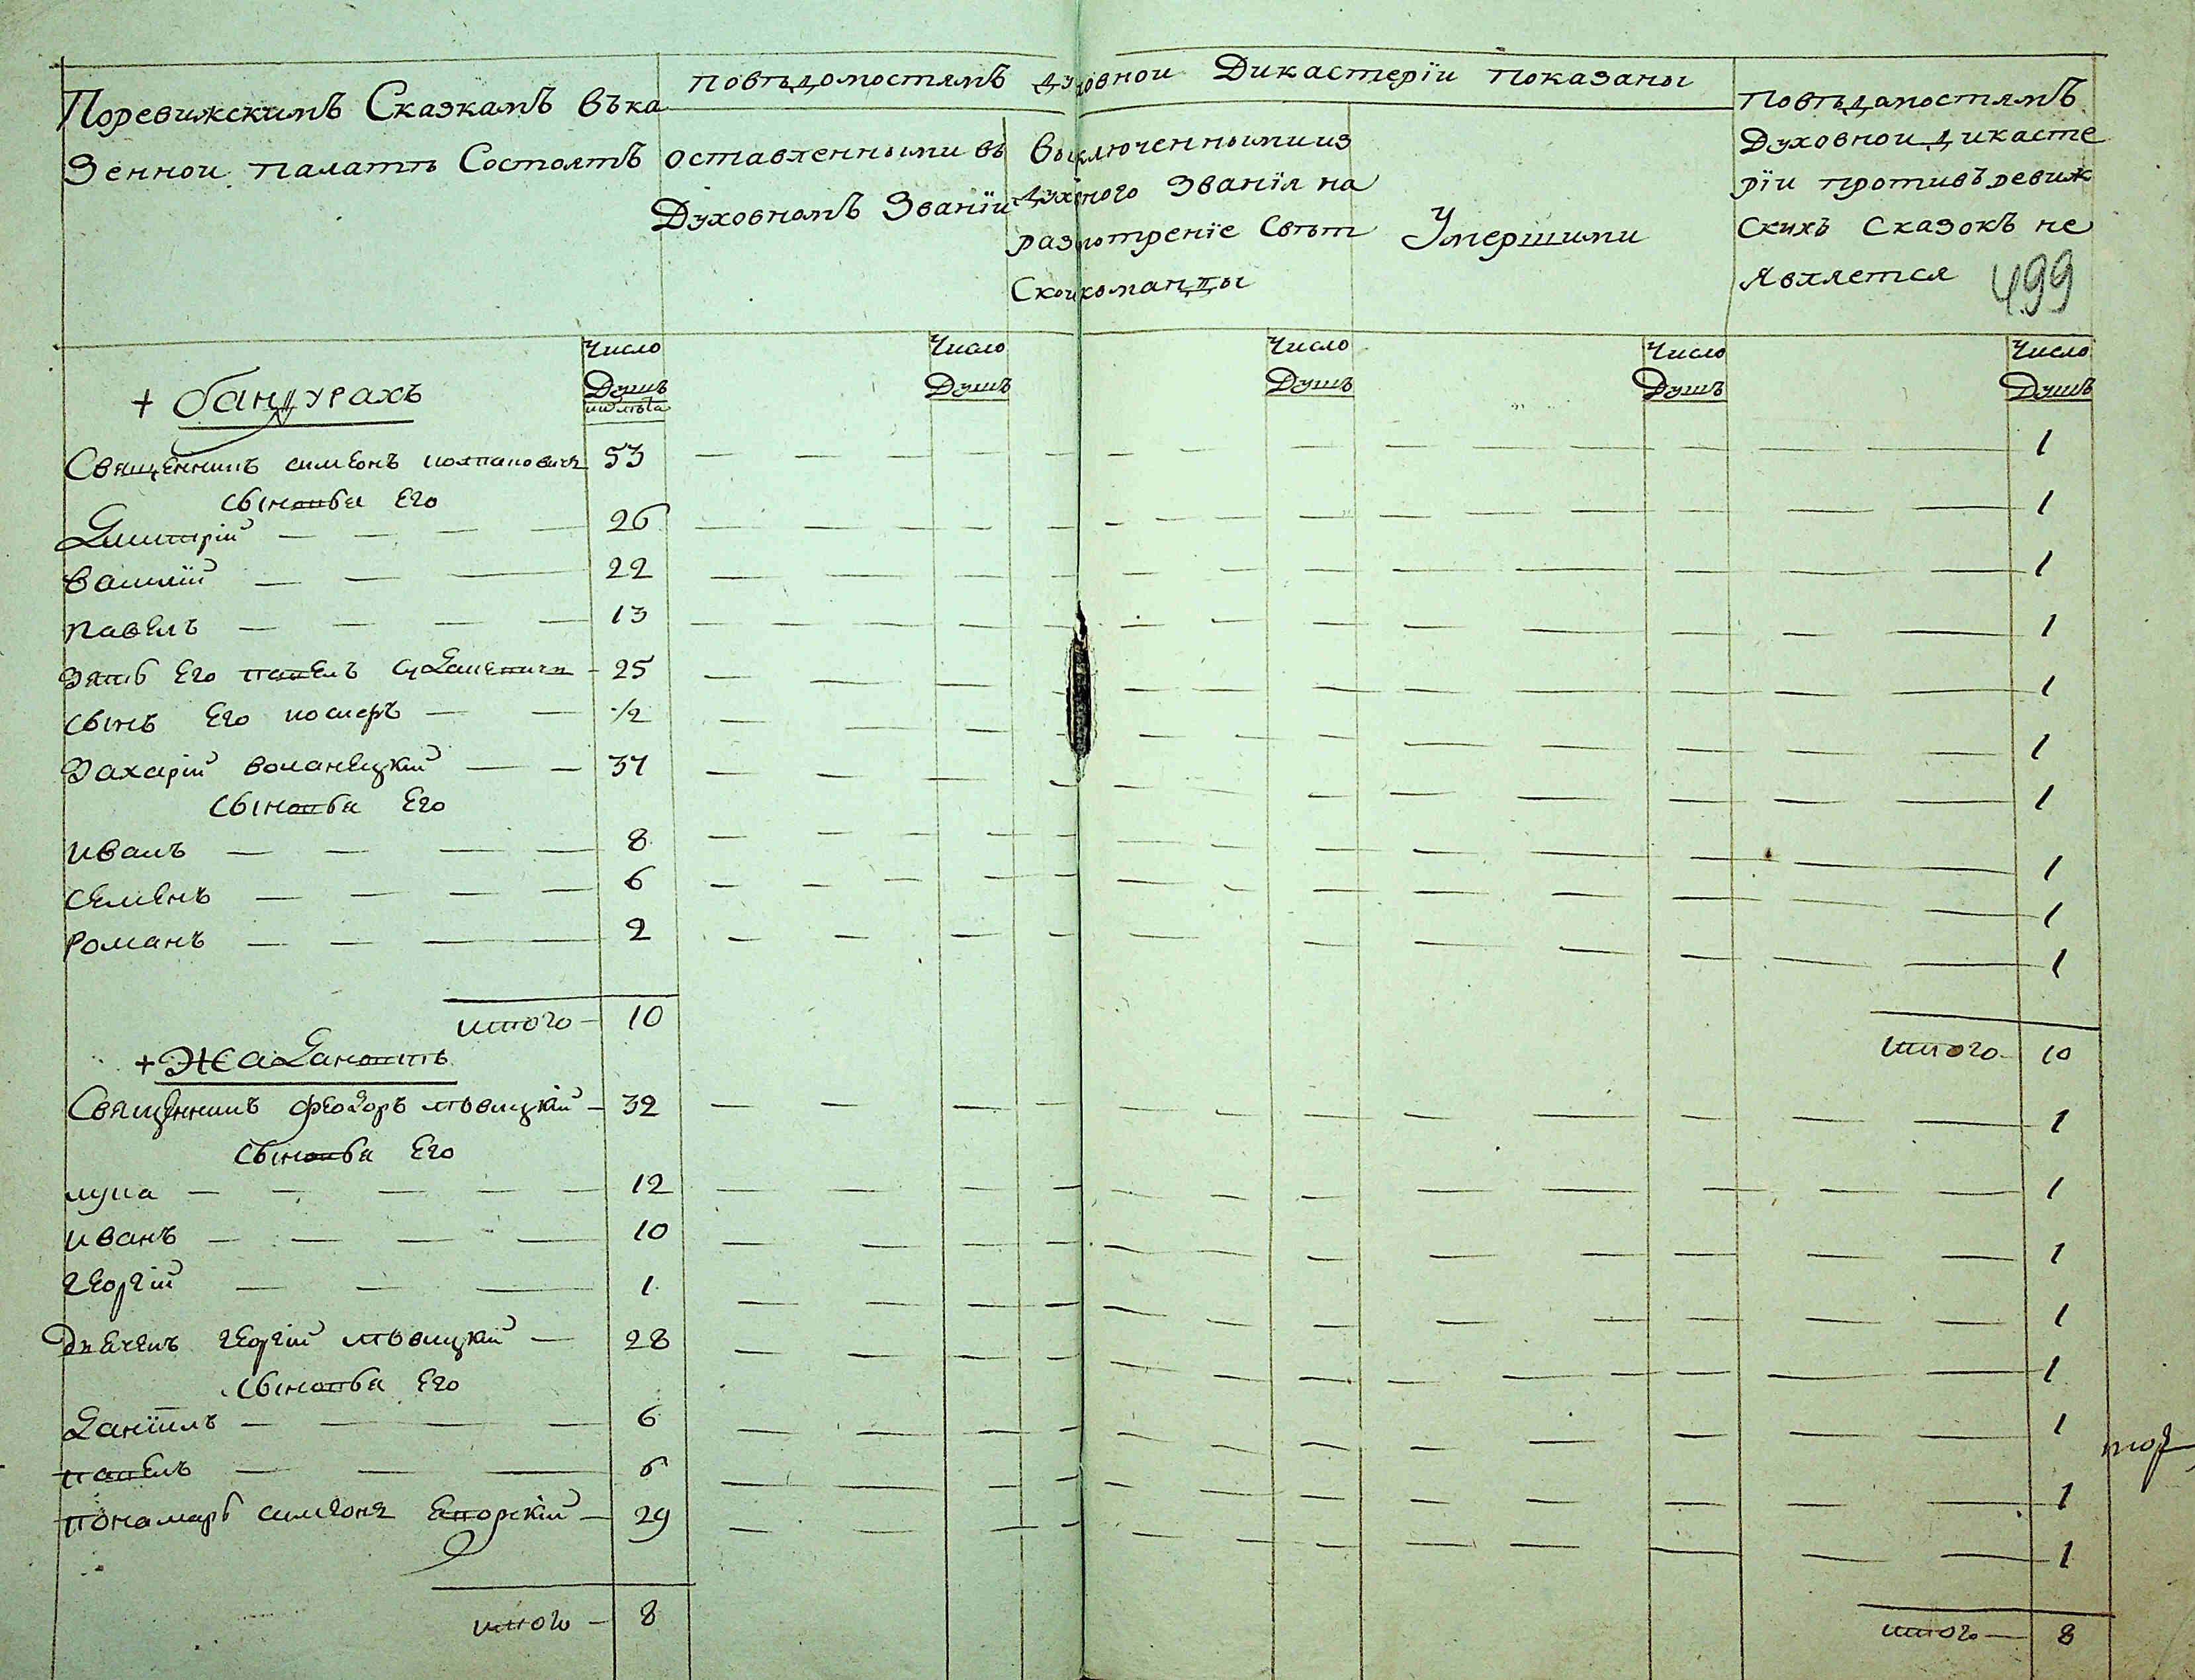 Поревижскимъ Сказкамъ въка
зенной палатѣ Состоятъ
Повѣдомостямъ духовной Дикастеріи показаны
оставленными въ
Духовномъ Званіи
выключенными из
духовного Званія на
разсмотреніе Свѣт
Ской команды
Умершими
Повѣдомостямъ
Духовной дикасте
ріи противъ ревиж
скихъ Сказокъ не
является 499
Число Душъ Число Душъ Число Душъ Число Душъ Число Душъ
и ихъ лѣта
+ бандурахъ
Священникъ симеонъ 53 1
сыновья его
Дмитрій 26 1
василій 22 1
павелъ 13 1
зять его павелъ 25 1
сынъ его 1/2 1
Захарій воланецкій 37 1
сыновья его
иванъ 8 1
семенъ 6 1
романъ 2 1
итого 10 итого 10
+ Жадановкѣ
Священникъ феодоръ левицкій 32 1
сыновья его
лука 12 1
иванъ 10 1
георгій 1 1
Дьячекъ георгій левицкій 28 1
сыновья его
даніилъ 6 1
павелъ 6 1
пономарь симеонъ 29 1
итого 8 итого 8